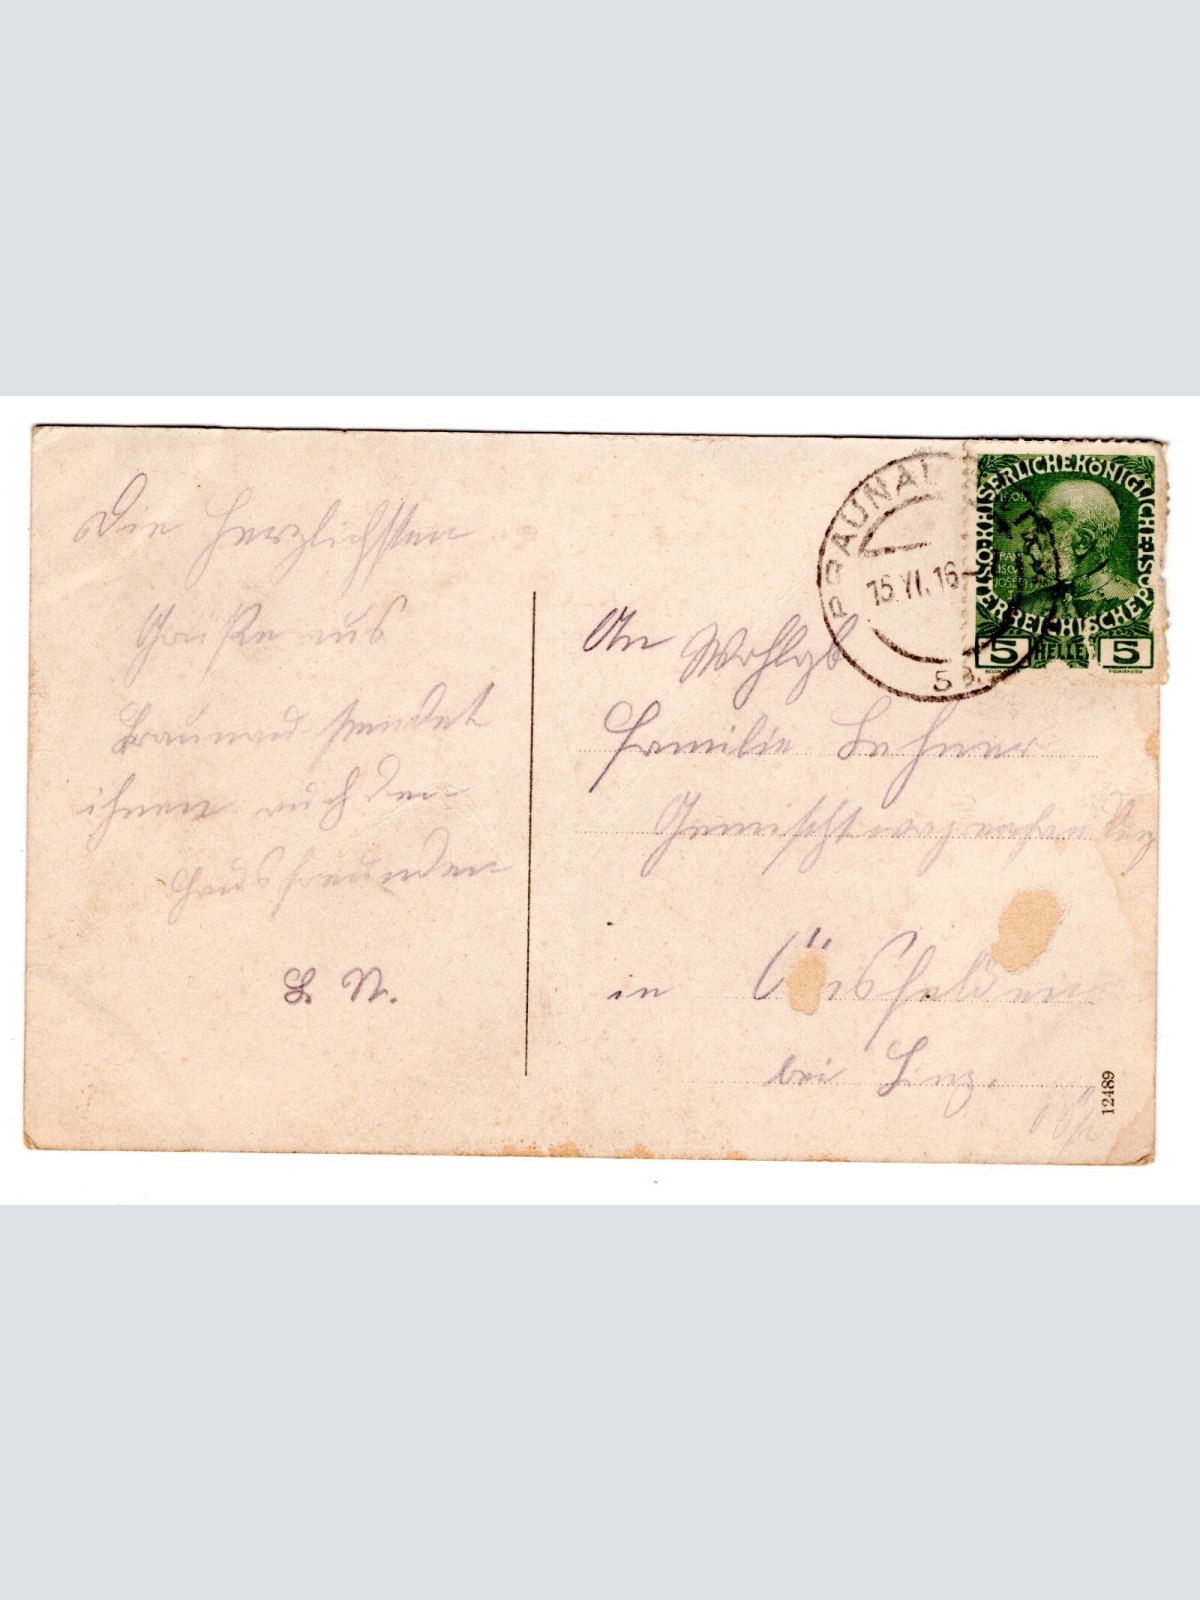 Die herzlichsten
Grüße aus
Braunau sendet
ihnen auch den
Hausfreunden
L. N.
BRAUNAU
15.VI.16
5a
KAISERLICHE KÖNIGLICHE ÖSTERREICHISCHE POST
1908
FRANZ
JOSEF I
5 HELLER 5
An Wohlgb
Familie Lehner
Gemischtwarenhandlung
in Ansfelden
bei Linz.
12489